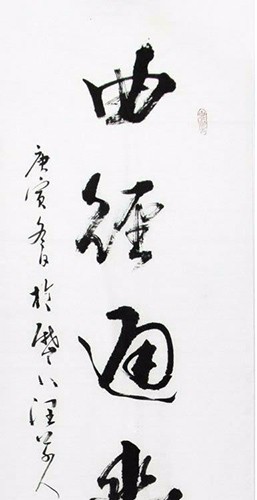 曲徑通幽
庚寅冬日於歷下